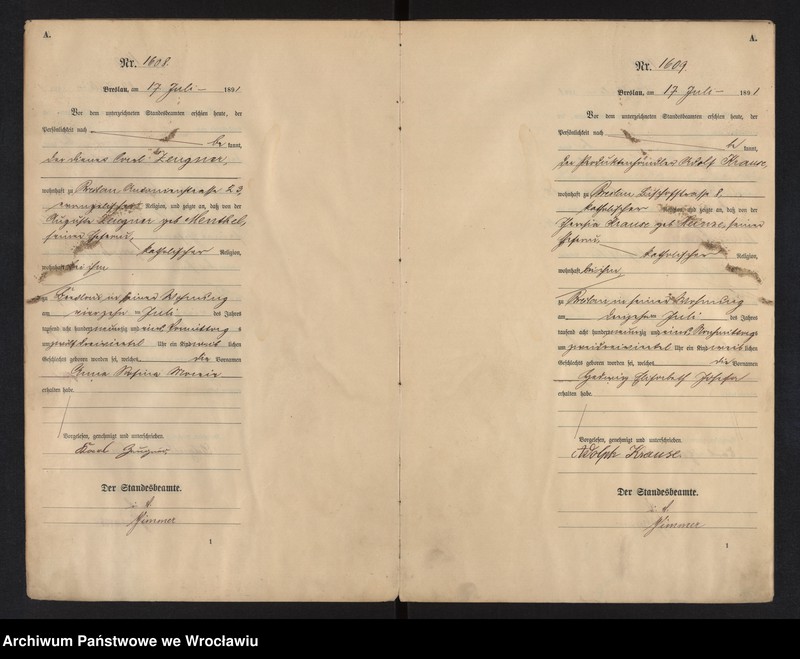 A.
Nr. 1608.
Breslau, am 17 Juli 1891
Vor dem unterzeichneten Standesbeamten erschien heute, der
Persönlichkeit nach
be kannt,
der Carl Zeugner,
wohnhaft zu Breslau 23
evangelischer Religion, und zeigte an, daß von der
Auguste Zeugner geb Menthel,
seiner Ehefrau,
katholischer Religion,
wohnhaft bei ihm
zu Breslau in seiner Wohnung
am vierzehn ten Juli des Jahres
tausend acht hundert neunzig und eins Vormittags
um Uhr ein Kind weib lichen
Geschlechts geboren worden sei, welches die Vornamen
Anna Maria
erhalten habe.
Vorgelesen, genehmigt und unterschrieben.
Karl Zeugner
Der Standesbeamte.
Zimmer
1
A.
Nr. 1609
Breslau, am 17 Juli 1891
Vor dem unterzeichneten Standesbeamten erschien heute, der
Persönlichkeit nach
be kannt,
der Produktenhändler Adolf Krause,
wohnhaft zu Breslau 8
katholischer Religion, und zeigte an, daß von der
Krause geb seiner
Ehefrau
katholischer Religion,
wohnhaft bei ihm
zu Breslau in seiner Wohnung
am Juli des Jahres
tausend acht hundert neunzig und eins Nachmittags
um Uhr ein Kind weib lichen
Geschlechts geboren worden sei, welches die Vornamen
Hedwig Elisabeth Josefa
erhalten habe.
Vorgelesen, genehmigt und unterschrieben.
Adolph Krause.
Der Standesbeamte.
Zimmer
1
Archiwum Państwowe we Wrocławiu